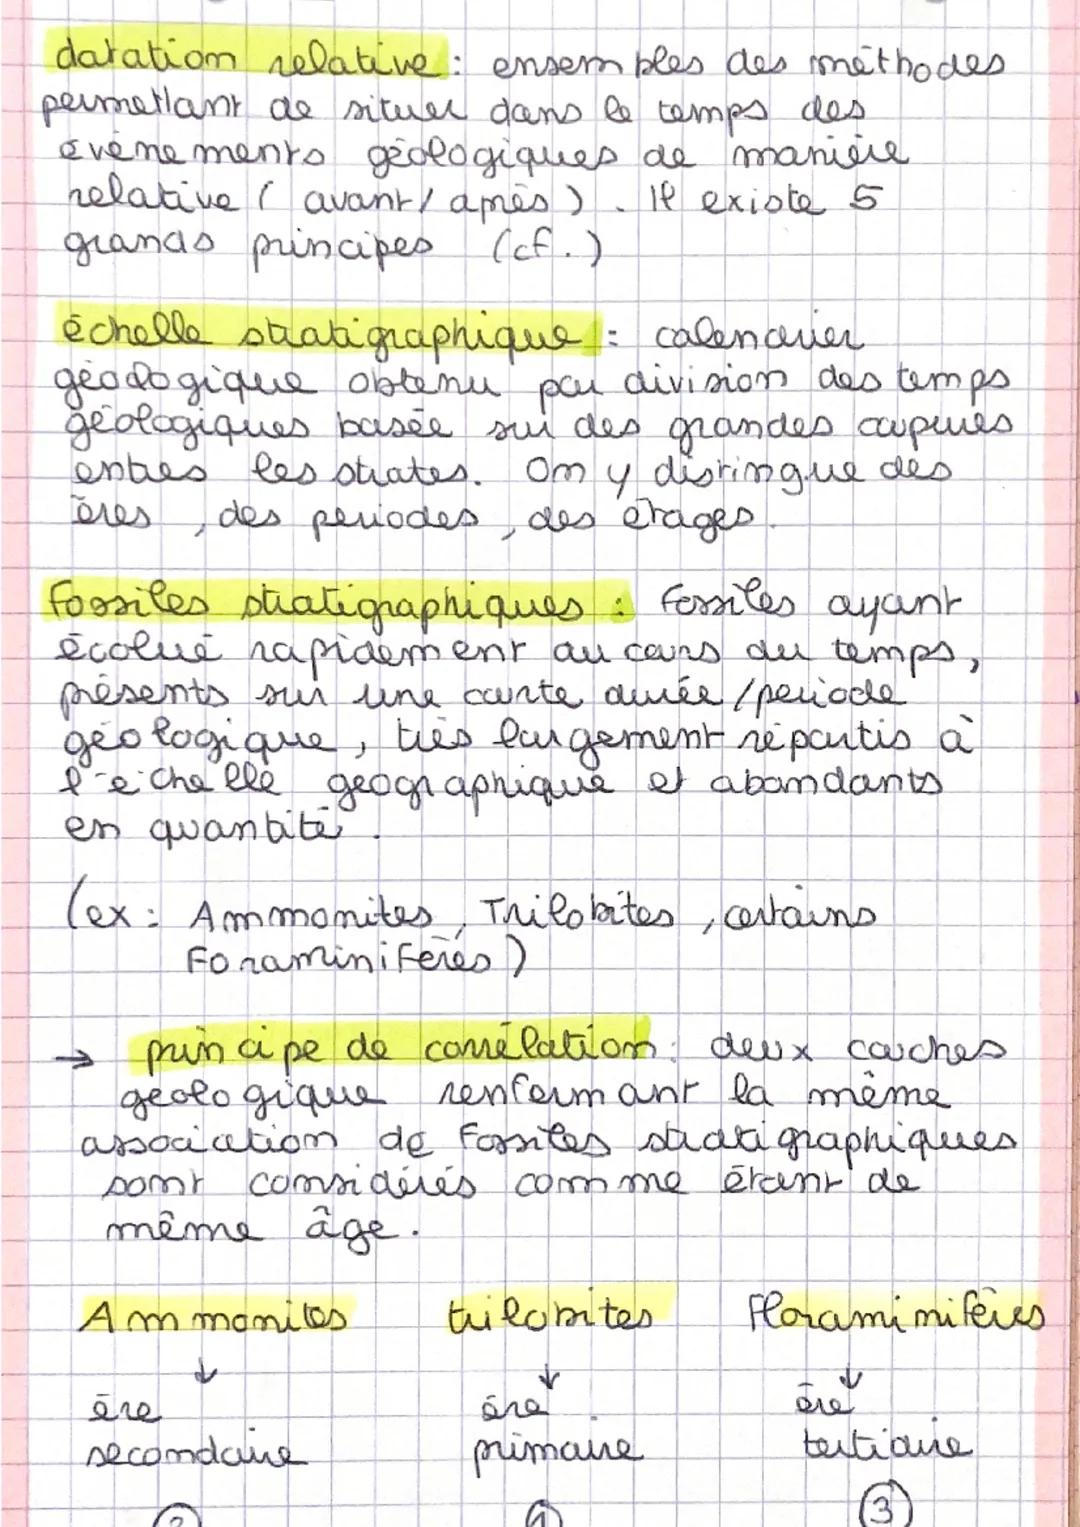 datation relative : ensembles des méthodes
permettant de situer dans le temps des
évènements géologiques de manière
relative ( avant / après ) . Il existe 5
grands principes (cf.)
échelle stratigraphique : calendrier
géologique obtenu par division des temps
géologiques basée sur des grandes coupures
entres les strates. On y distingue des
ères , des periodes , des étages .
Fossiles stratigraphiques : Fossiles ayant
écolué rapidement au cours du temps,
présents sur une courte durée / periode
géologique , très largement répartis à
l'échelle géographique et abondants
en quantité .
(ex : Ammonites , Trilobites , certains
Foraminifères )
→ principe de corrélation : deux couches
géologique renfermant la même
association de fossiles stratigraphiques
sont considérés comme étant de
même âge .
Ammonites trilobites Floraminifères
↓ ↓ ↓
ère ère ère
secondaire primaire tertiaire
2 1 3